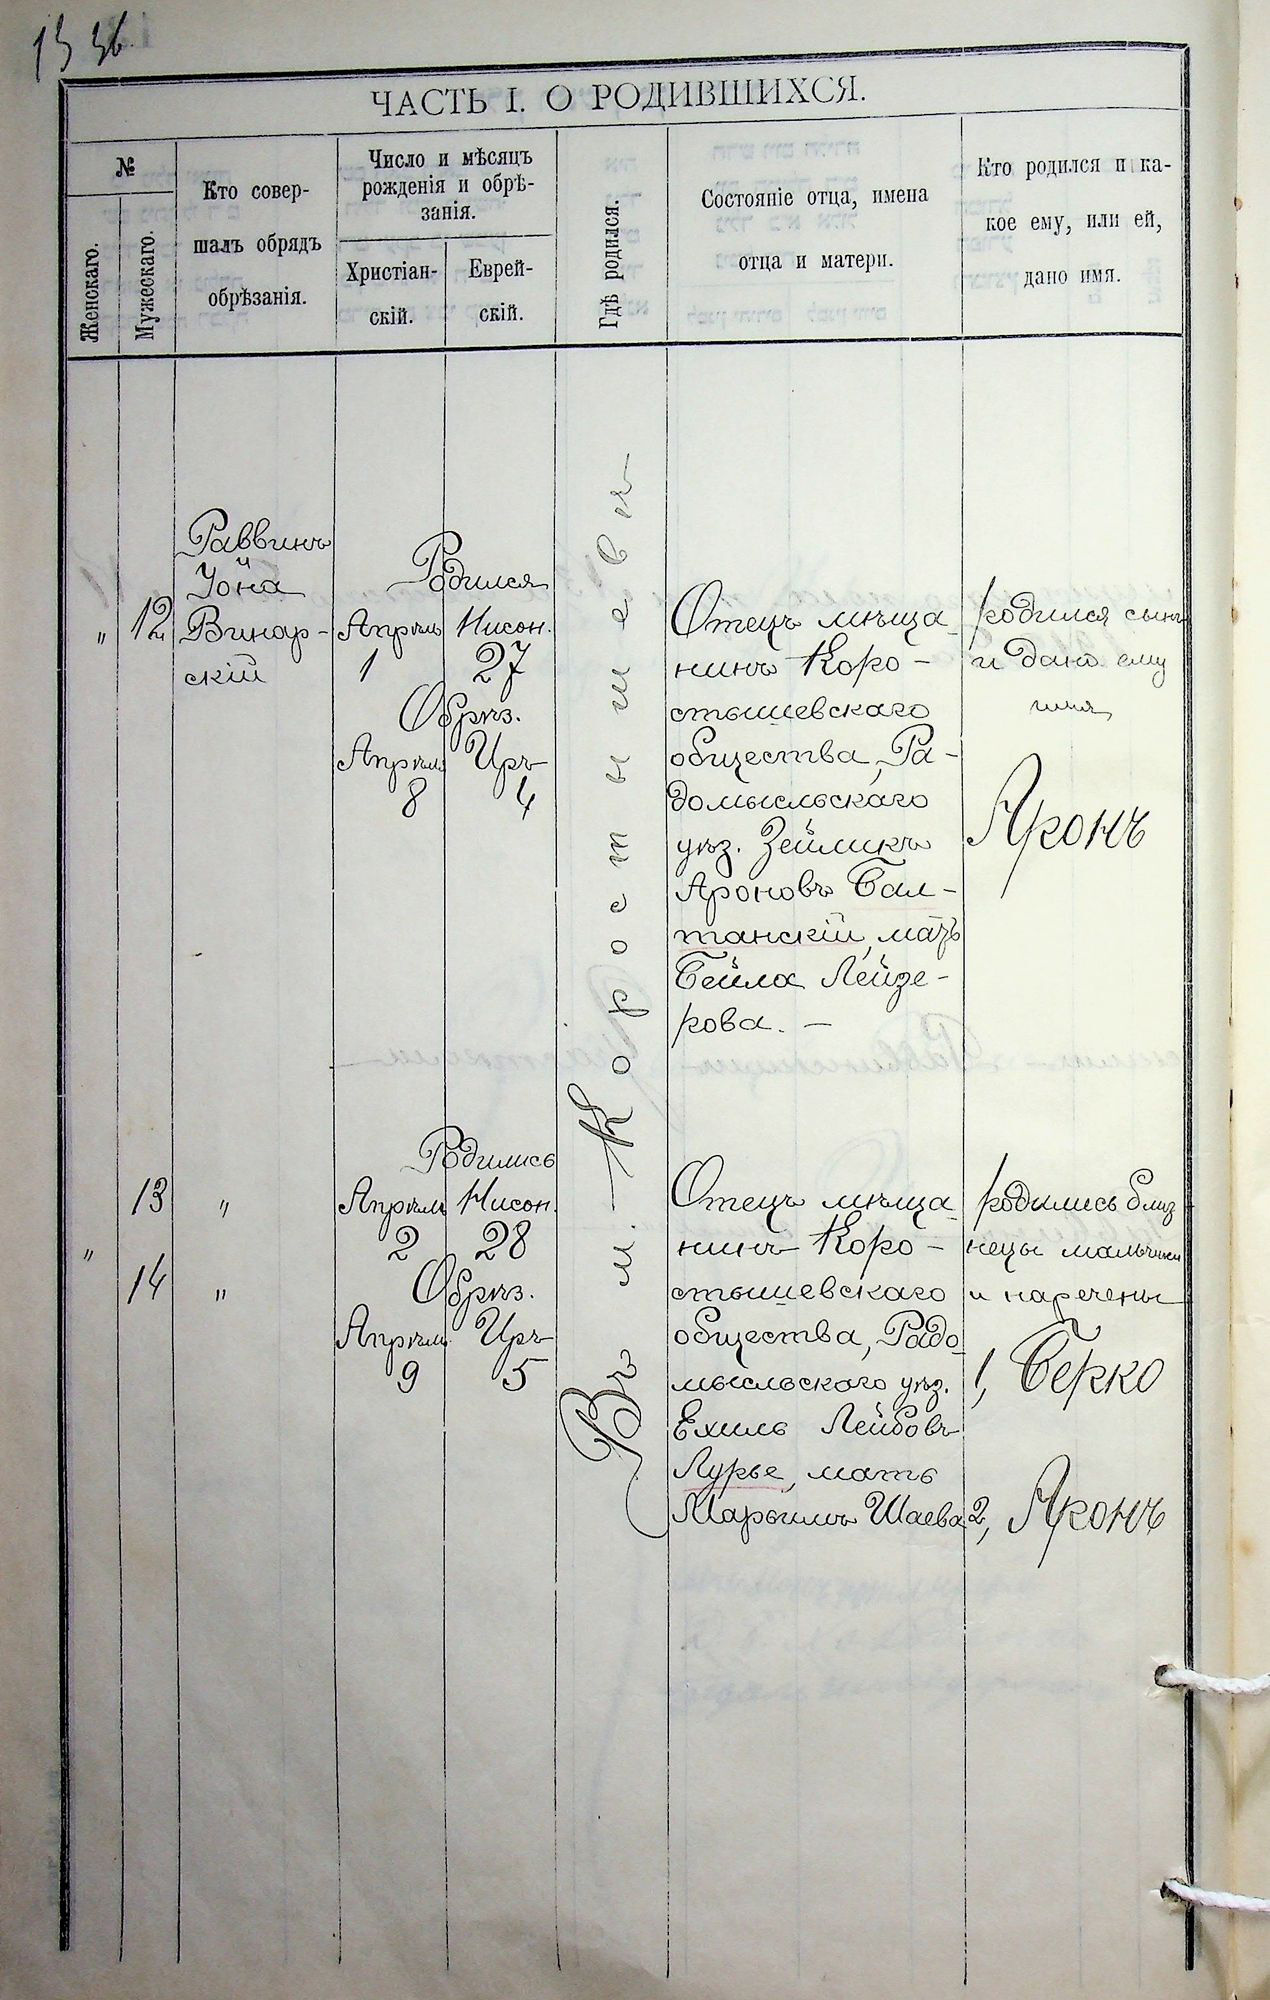 ЧАСТЬ I. О РОДИВШИХСЯ.
№
Женскаго.
Мужескаго.
Кто совер-
шалъ обрядъ
обрѣзанія.
Число и мѣсяцъ
рожденія и обрѣ-
занія.
Христіан-
скій.
Еврей-
скій.
Гдѣ родился.
Состояніе отца, имена
отца и матери.
Кто родился и ка-
кое ему, или ей,
дано имя.
"
12
Раввинъ
Іона
Винар-
скій
Родился
Апрѣль Нисон.
1 27
Обрѣз.
Апрѣль Иръ
8 4
Въ м. Коростышевѣ
Отецъ мѣща-
нинъ Коро-
стышевскаго
общества, Ра-
домысльскаго
уѣз. Зейликъ
Ароновъ Бал-
танскій, мать
Бейла Лейзе-
рова. —
родился сынъ
и дано ему
имя
Аронъ
13 "
"
14 "
Родились
Апрѣль Нисон.
2 28
Обрѣз.
Апрѣль Иръ
9 5
Отецъ мѣща-
нинъ Коро-
стышевскаго
общества, Радо-
мысльскаго уѣз.
Ехиль Лейбовъ
Лурье, мать
Марьимъ Шаева
родились близ
нецы мальчики
и наречены
1, Берко
2, Аронъ